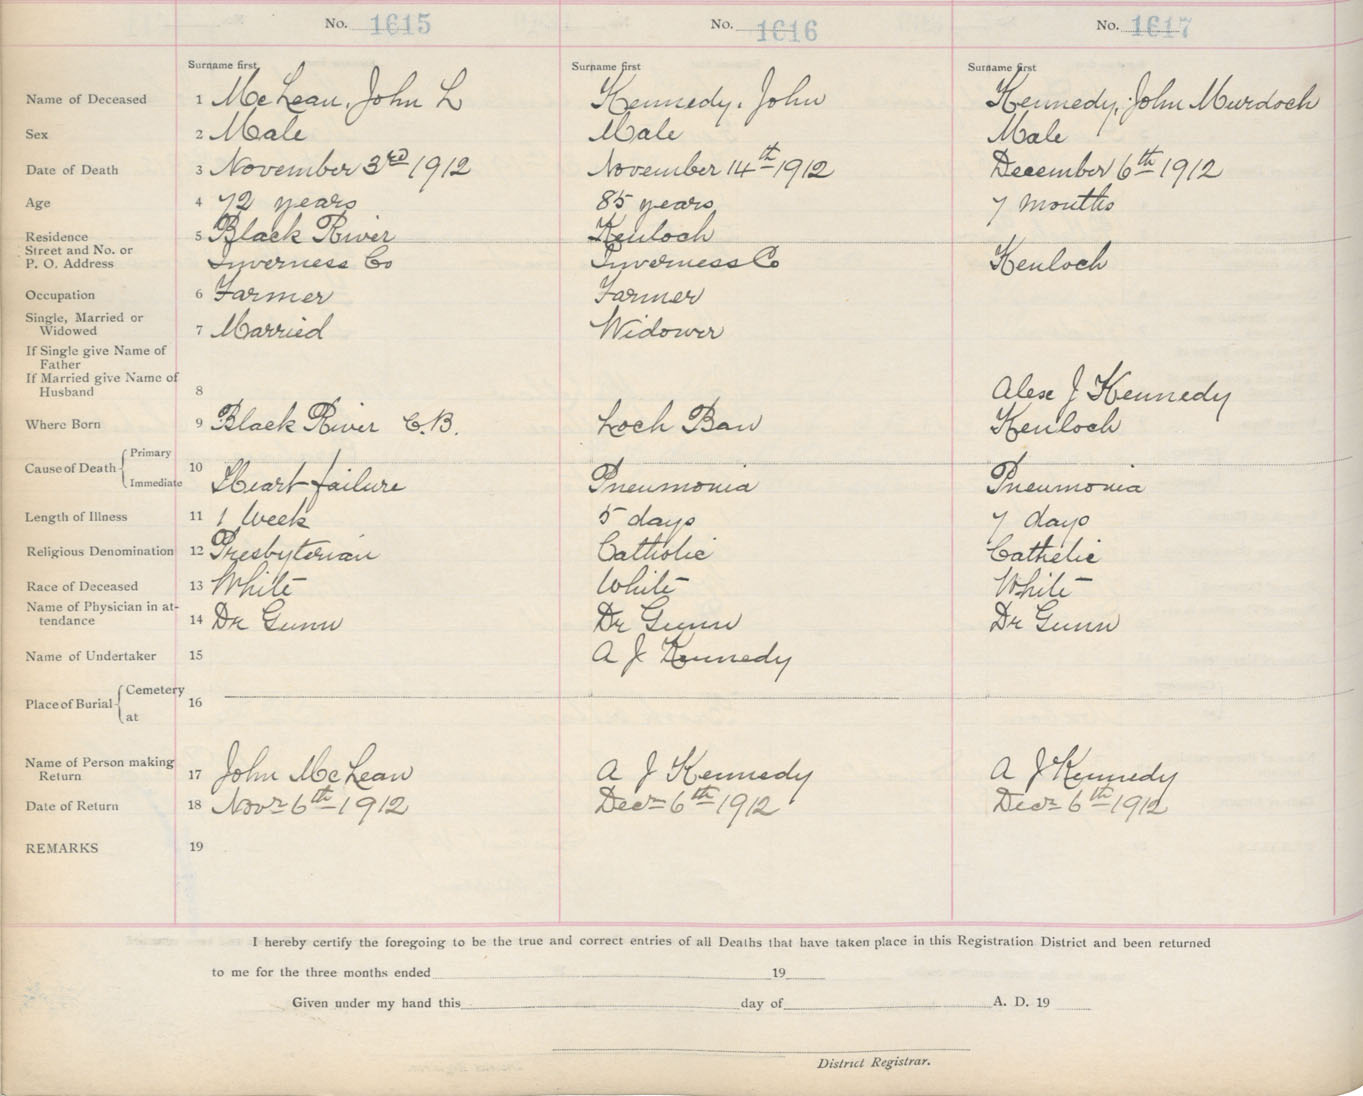 No. 1615 No. 1616 No. 1617
Surname first Surname first Surname first
Name of Deceased 1 McLean, John L Kennedy, John Kennedy, John Murdoch
Sex 2 Male Male Male
Date of Death 3 November 3rd 1912 November 14th 1912 December 6th 1912
Age 4 72 years 85 years 7 months
Residence 5 Black River Kenloch
Street and No. or
P. O. Address Inverness Co Inverness Co Kenloch
Occupation 6 Farmer Farmer
Single, Married or
Widowed 7 Married Widower
If Single give Name of
Father
If Married give Name of
Husband 8 Alex J Kennedy
Where Born 9 Black River C.B. Loch Ban Kenloch
Cause of Death Primary 10
Immediate Heart failure Pneumonia Pneumonia
Length of Illness 11 1 Week 5 days 7 days
Religious Denomination 12 Presbyterian Catholic Catholic
Race of Deceased 13 White White White
Name of Physician in at-
tendance 14 Dr Gunn Dr Gunn Dr Gunn
Name of Undertaker 15 A J Kennedy
Place of Burial Cemetery 16
at
Name of Person making
Return 17 John McLean A J Kennedy A J Kennedy
Date of Return 18 Novr 6th 1912 Decr 6th 1912 Decr 6th 1912
REMARKS 19
I hereby certify the foregoing to be the true and correct entries of all Deaths that have taken place in this Registration District and been returned
to me for the three months ended 19
Given under my hand this day of A. D. 19
District Registrar.